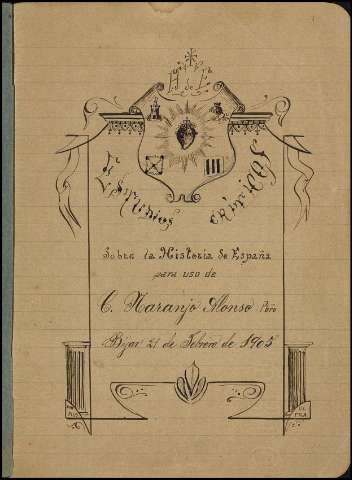 H. de E.
Estudios críticos
Sobre la Historia de España
para uso de
C. Naranjo Alonso Pbro
Béjar 21 de Febrero de 1905
PLUS
ULTRA